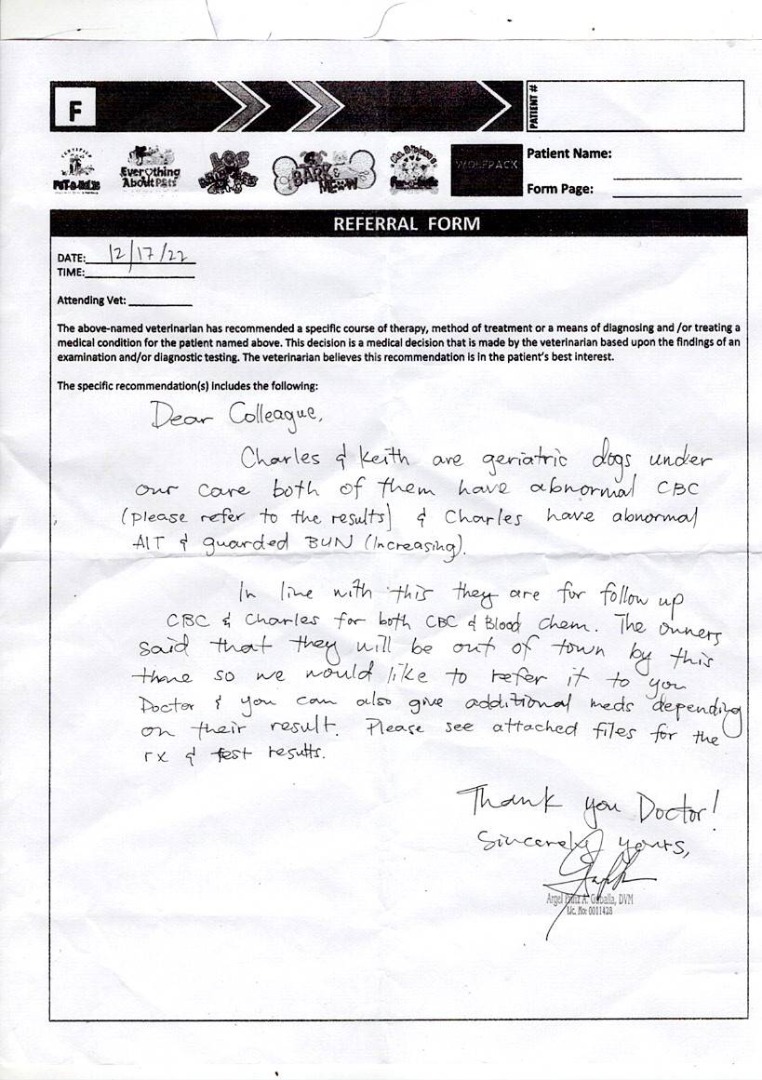 F
PATIENT #
CERTIFIED
PET-A-HOLIC
Everything
About Pets
LOS
BARK &
MEOW
WOLFPACK
Patient Name:
Form Page:
REFERRAL FORM
DATE: 12/17/22
TIME:
Attending Vet:
The above-named veterinarian has recommended a specific course of therapy, method of treatment or a means of diagnosing and /or treating a
medical condition for the patient named above. This decision is a medical decision that is made by the veterinarian based upon the findings of an
examination and/or diagnostic testing. The veterinarian believes this recommendation is in the patient's best interest.
The specific recommendation(s) includes the following:
Dear Colleague,
Charles & Keith are geriatric dogs under
our care both of them have abnormal CBC
(please refer to the results) & Charles have abnormal
ALT & guarded BUN (Increasing).
In line with this they are for follow up
CBC & Charles for both CBC & Blood chem. The owners
said that they will be out of town by this
time so we would like to refer it to you
Doctor & you can also give additional meds depending
on their result. Please see attached files for the
rx & test results.
Thank you Doctor!
Sincerely yours,
Argel A. DVM
Lic. No: 0011428